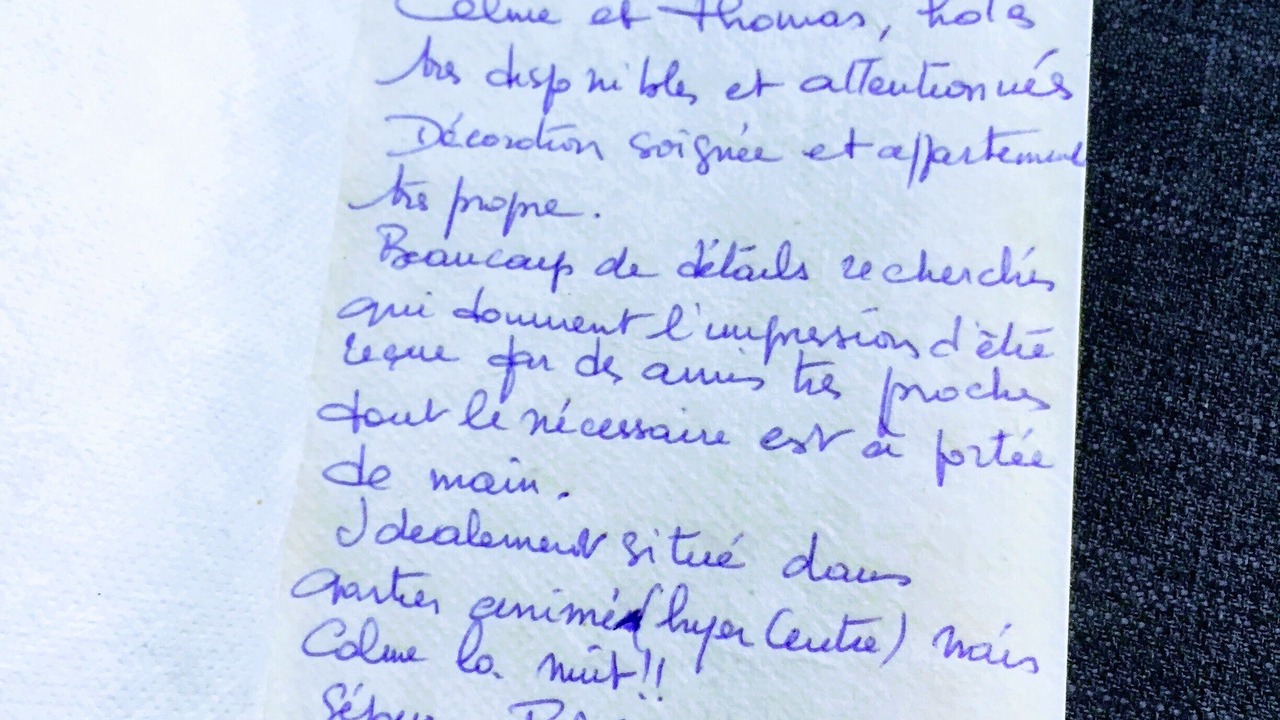 et Thomas, hots
très disponibles et attentionnés
Décoration soignée et appartement
très propre.
Beaucoup de détails recherchés
qui donnent l'impression d'être
reçue par des amis très proches
tout le nécessaire est à portée
de main.
Idealement situé dans
quartier animé (hyper Centre) mais
Calme la nuit!!